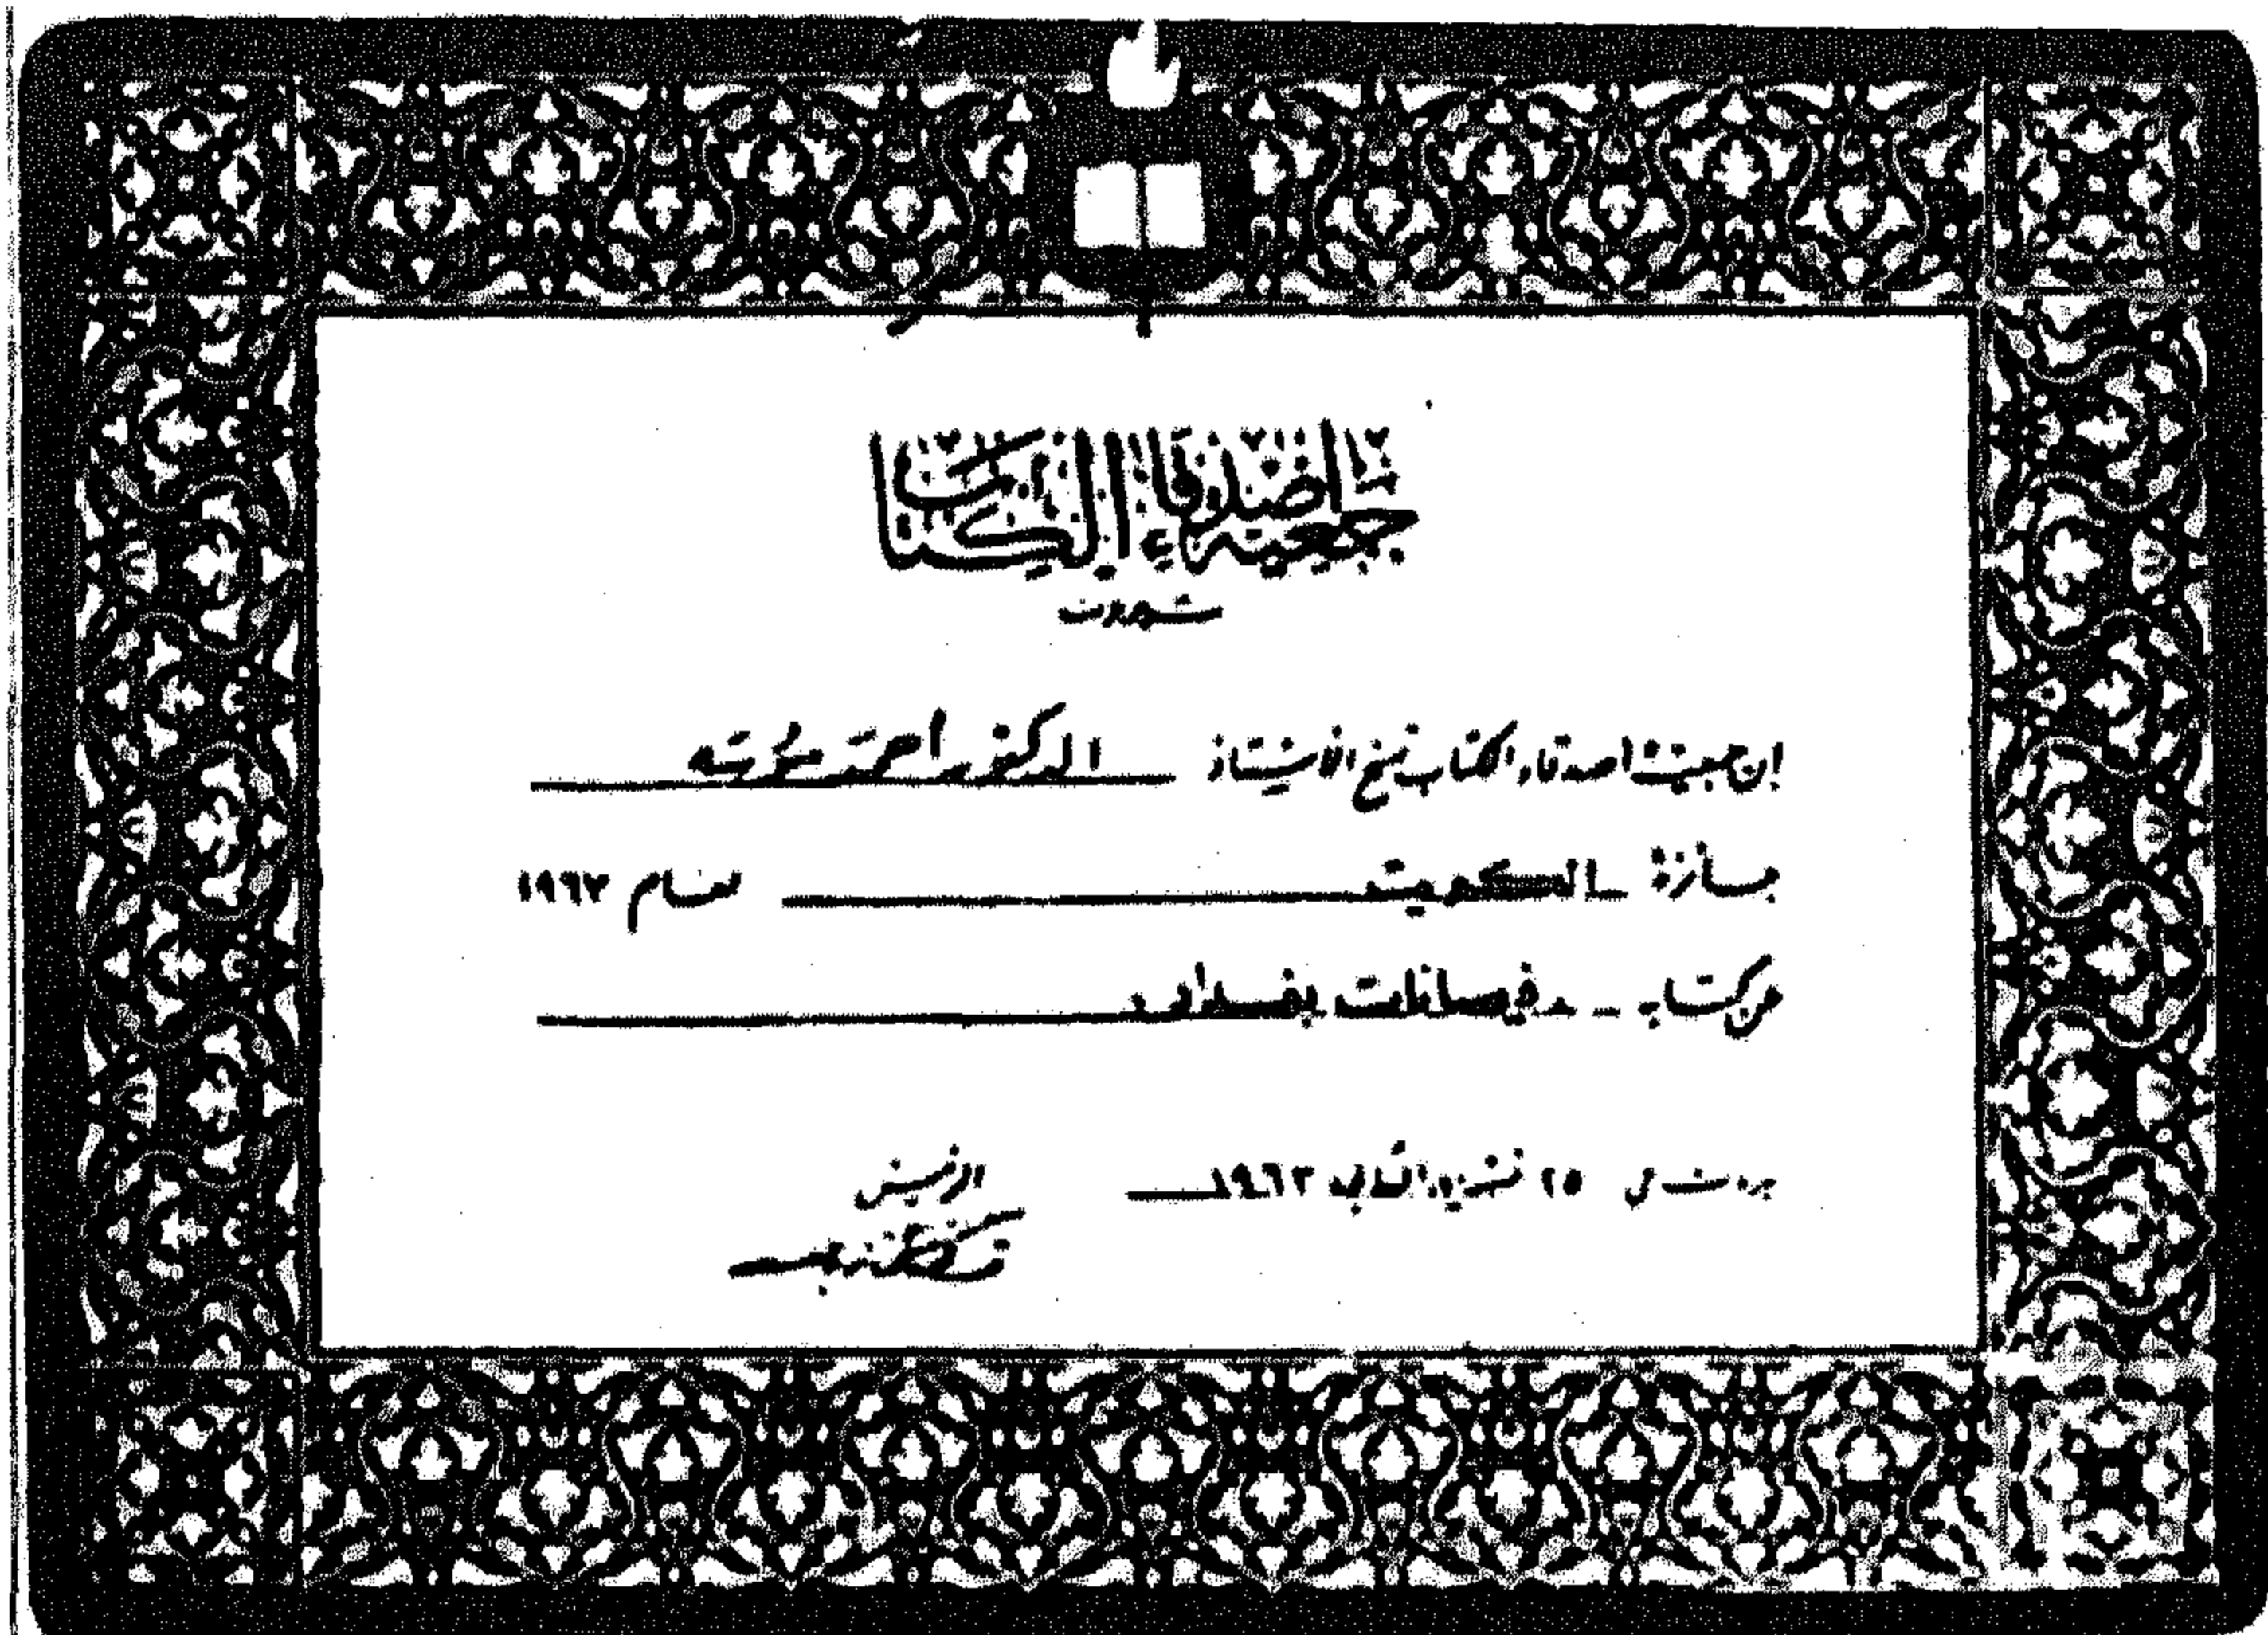 جمعية اصدقاء الكتاب
إن جمعية اصدقاء الكتاب تمنح الاستاذ الدكتور احمد سوسه
جائزة الكويت لعام ١٩٦٣
عن كتابه فيضانات بغداد
بيروت في ٢٥ تشرين الثاني ١٩٦٣
الرئيس